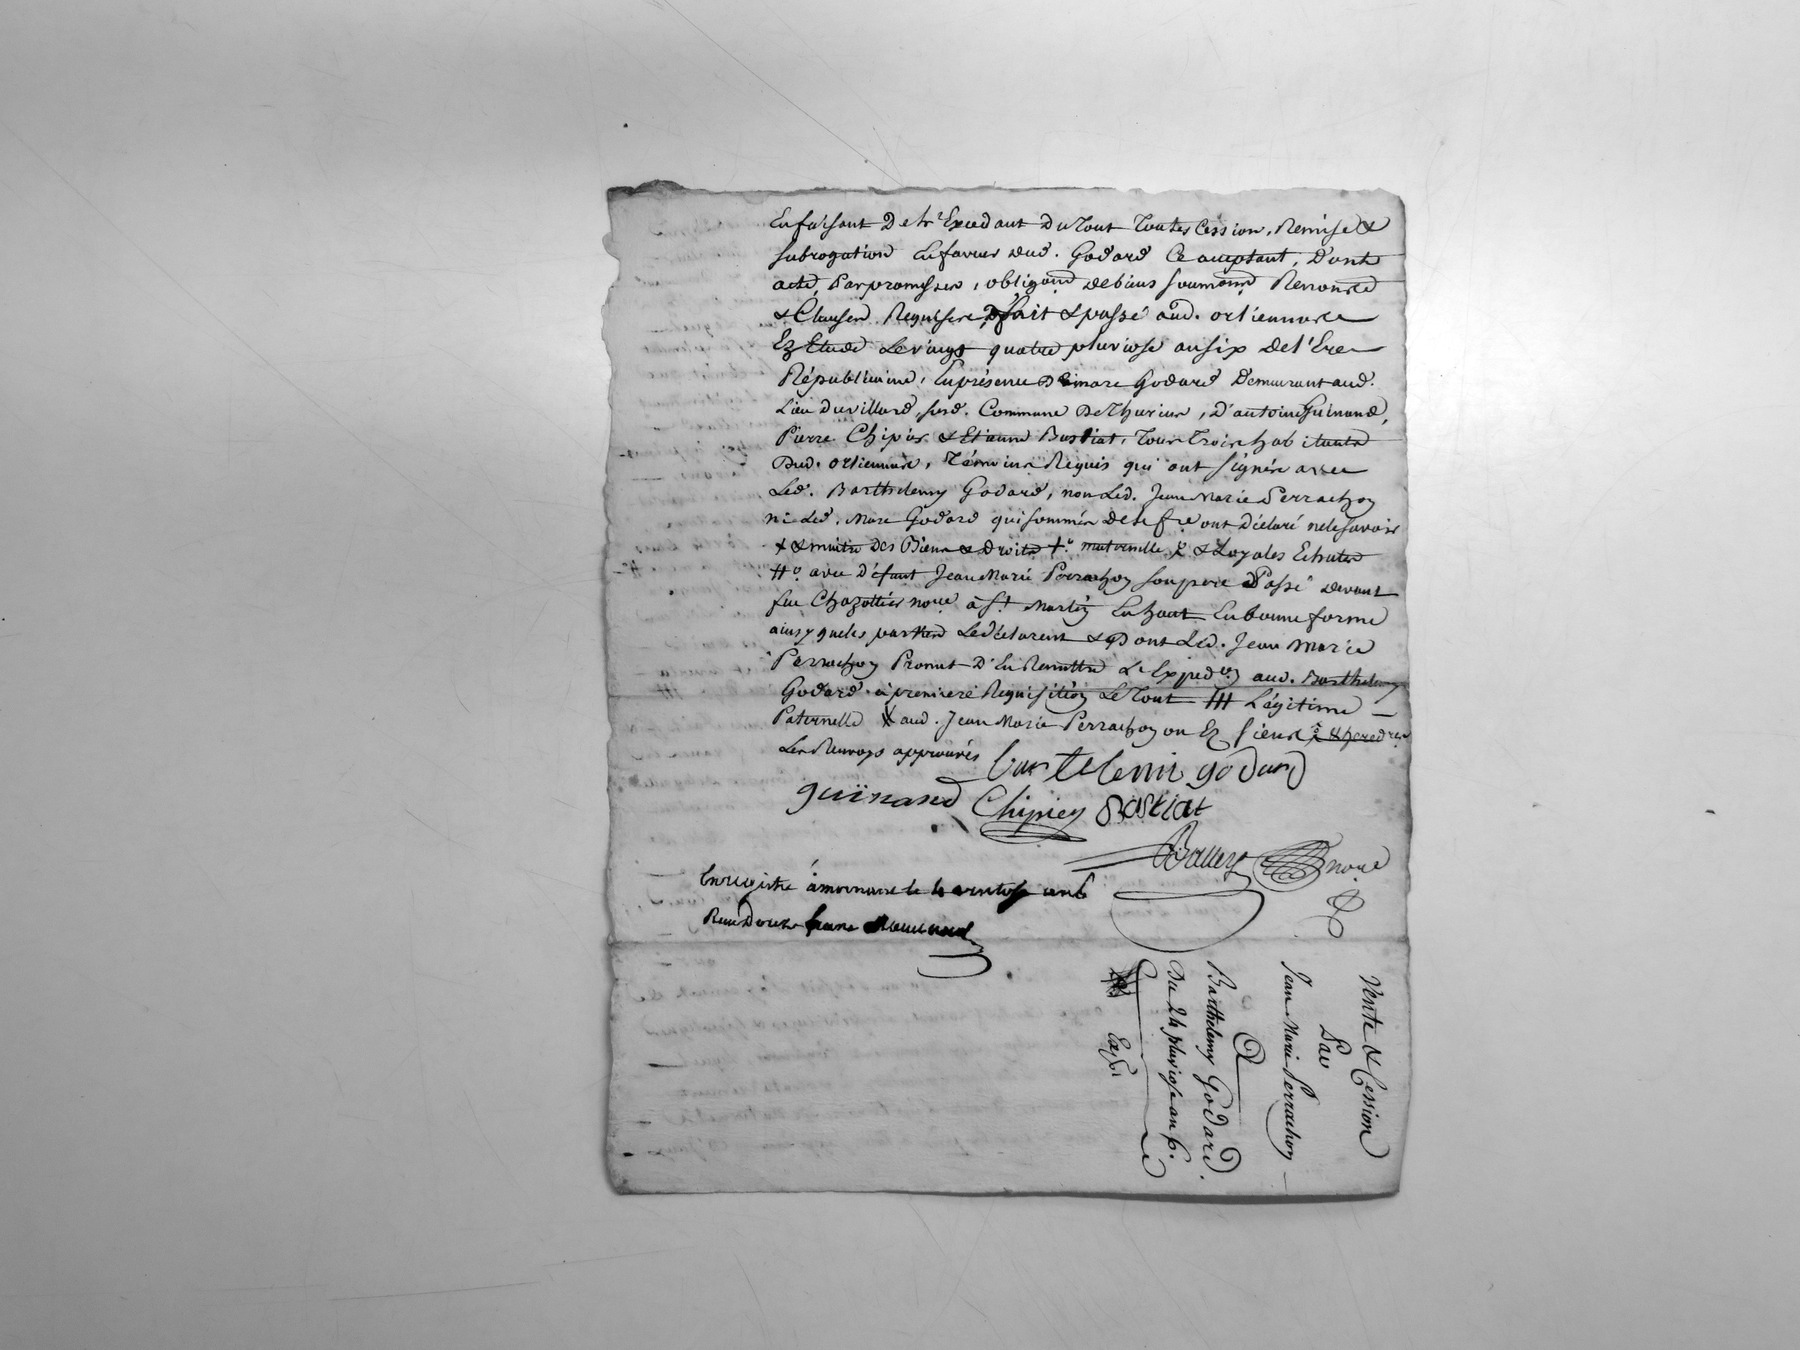 En faisant De tr Excedant Du tout Toutes Cession, Remise &
subrogation En faveur dud. Godard Ce acceptant, Dont
acte, Par promesses, obligaõns de biens soumissõns Renonce
& Clauses Requises, fait & passé aud. ortiennare
Ez Etude Le vingt quatre pluviose an six De l'Ere
Républicaine, En présence De marc Godard Demeurant aud.
Lieu Du villard, susd. Commune De Thurins, D'antoine Guinand,
Pierre Chipier & Etienne Bastiat, Tous Trois habitants
Dud. ortiennare, Témoins Requis qui ont signés avec
Led. Barthelemy Godard, non Led. Jean Marie Perrachon
ni Led. Marc Godard qui sommés de se f ont Déclaré ne le savoir
+ & moitié Des Biens & Droits maternelle & Loyales Echutes
avec Défaunt Jean Marie Perrachon son pere Passé devant
feu Chazottier noʳᵉ à St. Martin En haut En bonne forme
ainsy que les parties Le déclarent & Dont Led. Jean Marie
Perrachon Promet D'En Remettre Le Expedᵒⁿ aud. Barthelemy
Godard à premiere Requisition Le Tout ### Légitime
Paternelle X aud. Jean Marie Perrachon ou Ez siens &
Les Renvoys approuvés
Bartelemi godard
guinand Chipier Bastiat
Balley noʳᵉ
Enregistré à mornant le 4 ventose an 6
Reçu Douze francs
Vente & Cession
Par
Jean Marie Perrachon
A
Barthelemy Godard.
Du 24 pluviose an 6.
Expé